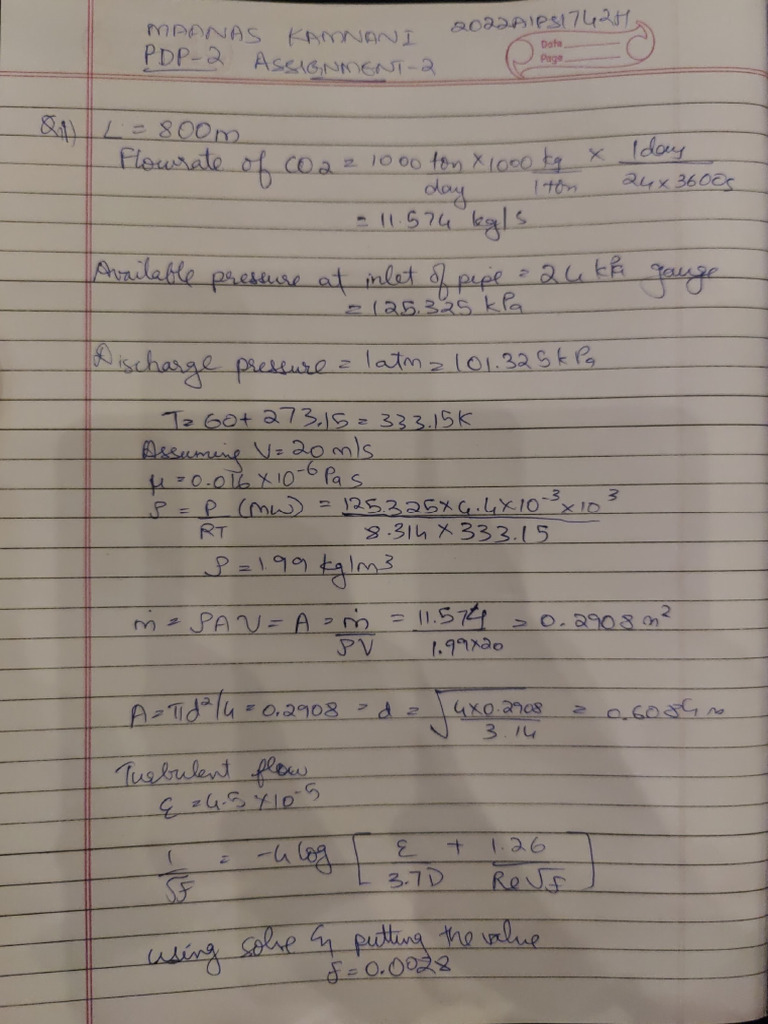 MAANAS KAMNANI 2022A1PS1742H
PDP-2 ASSIGNMENT-2
Date
Page
Q1) L = 800m
Flowrate of CO2 = 1000 ton/day × 1000 kg/1 ton × 1 day/24×3600s
= 11.574 kg/s
Available pressure at inlet of pipe = 24 kPa gauge
= 125.325 kPa
Discharge pressure = 1atm = 101.325 kPa
T = 60 + 273.15 = 333.15K
Assuming V = 20 m/s
μ = 0.016 ×10⁻⁶ Pa s
ρ = P/RT (mw) = 125.325×4.4×10⁻³×10³/8.314 × 333.15
ρ = 1.99 kg/m³
ṁ = ρAV = A = ṁ/ρV = 11.574/1.99×20 = 0.2908 m²
A = πd²/4 = 0.2908 = d = √(4×0.2908/3.14) = 0.6084 m
Turbulent flow
ε = 4.5 ×10⁻⁵
1/√f = -4 log [ε/3.7D + 1.26/Re√f]
using solve & putting the value
f = 0.0028